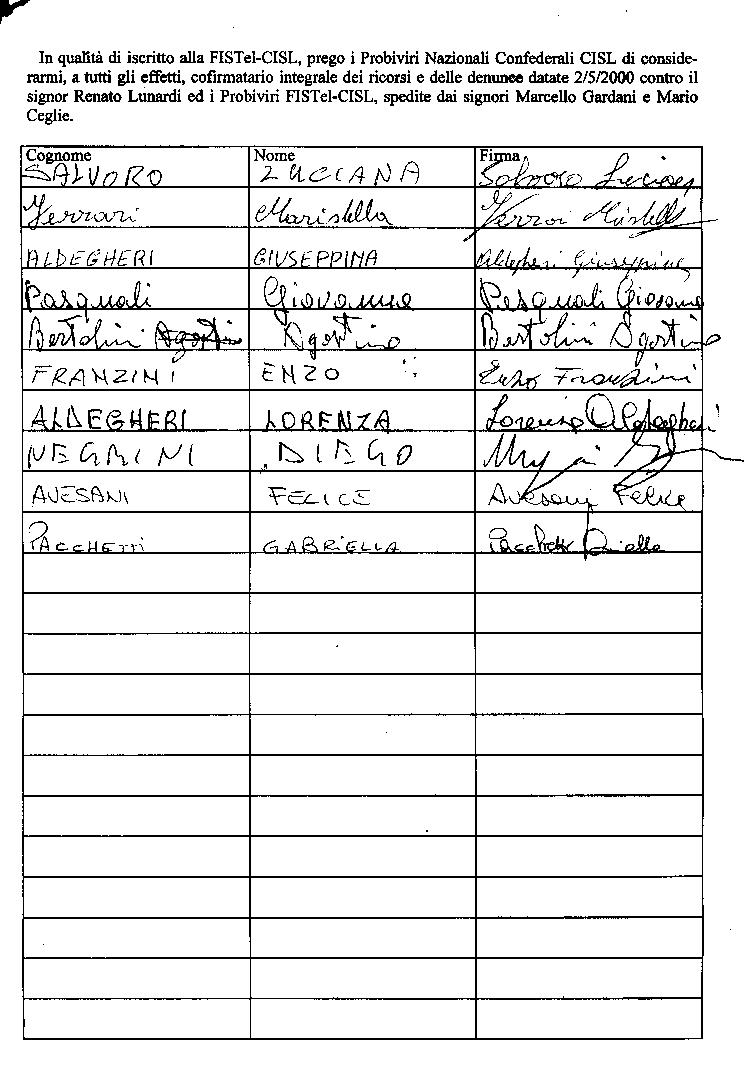 In qualità di iscritto alla FISTel-CISL, prego i Probiviri Nazionali Confederali CISL di conside-
rarmi, a tutti gli effetti, cofirmatario integrale dei ricorsi e delle denunce datate 2/5/2000 contro il
signor Renato Lunardi ed i Probiviri FISTel-CISL, spedite dai signori Marcello Gardani e Mario
Ceglie.
Cognome Nome Firma
SALVORO LUCIANA Salvoro
Ferrari Maristella Ferrari
ALDEGHERI GIUSEPPINA Aldegheri Giuseppina
Pasquali Giovanna Pasquali Giovanna
Bertolini Agostino Agostino Bertolini Agostino
FRANZINI ENZO Enzo Franzini
ALDEGHERI LORENZA Lorenza Aldegheri
NEGRINI DIEGO
AVESANI FELICE Avesani Felice
PACCHETTI GABRIELLA Pacchetti